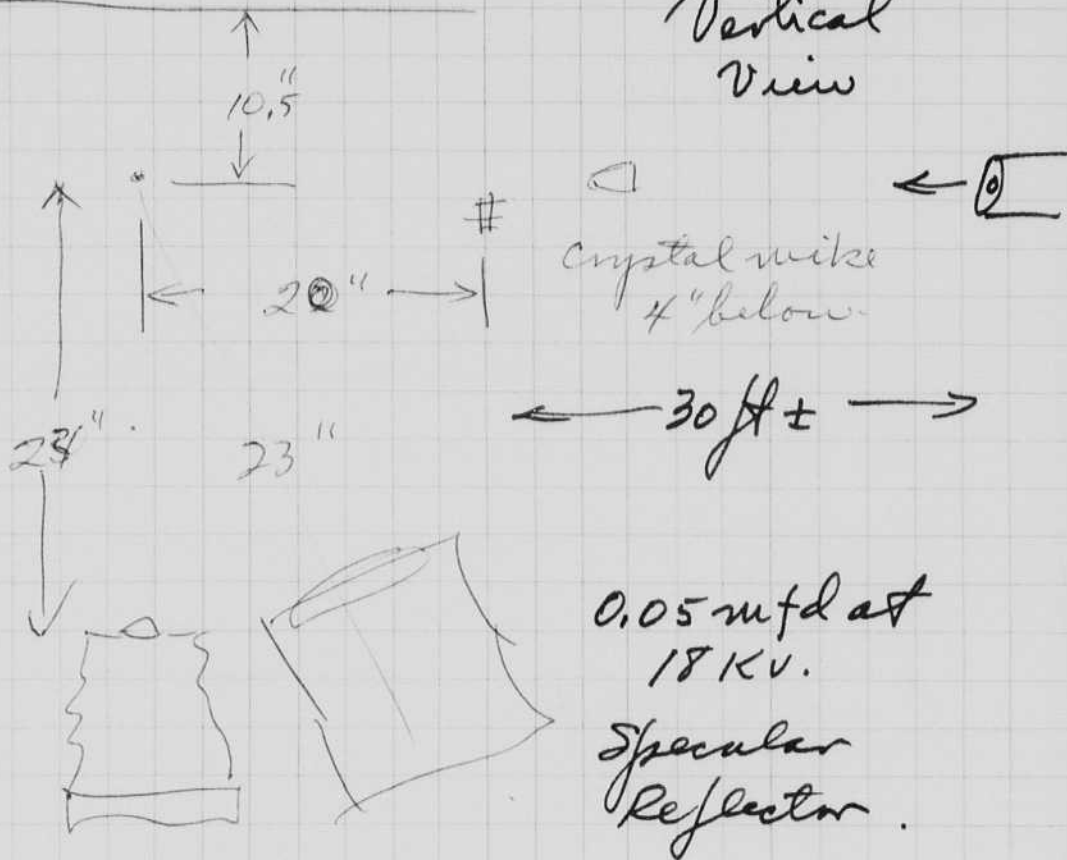 Vertical
View
10.5"
#
Crystal mike
4" below.
20"
30 ft ±
23"
0.05 mfd at
18 KV.
Specular
Reflector.